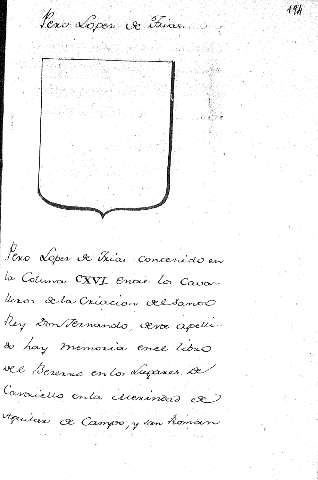 194
Pero Lopez de Frias
Pero Lopez de Frias contenido en
la Coluna CXVI entre los Cava-
lleros de la Criacion del Santo
Rey Don Fernando, deste apelli-
do hay memoria en el libro
del Becerro en los Lugares de
en la Merindad de
Aguilar de Campo, y San Román